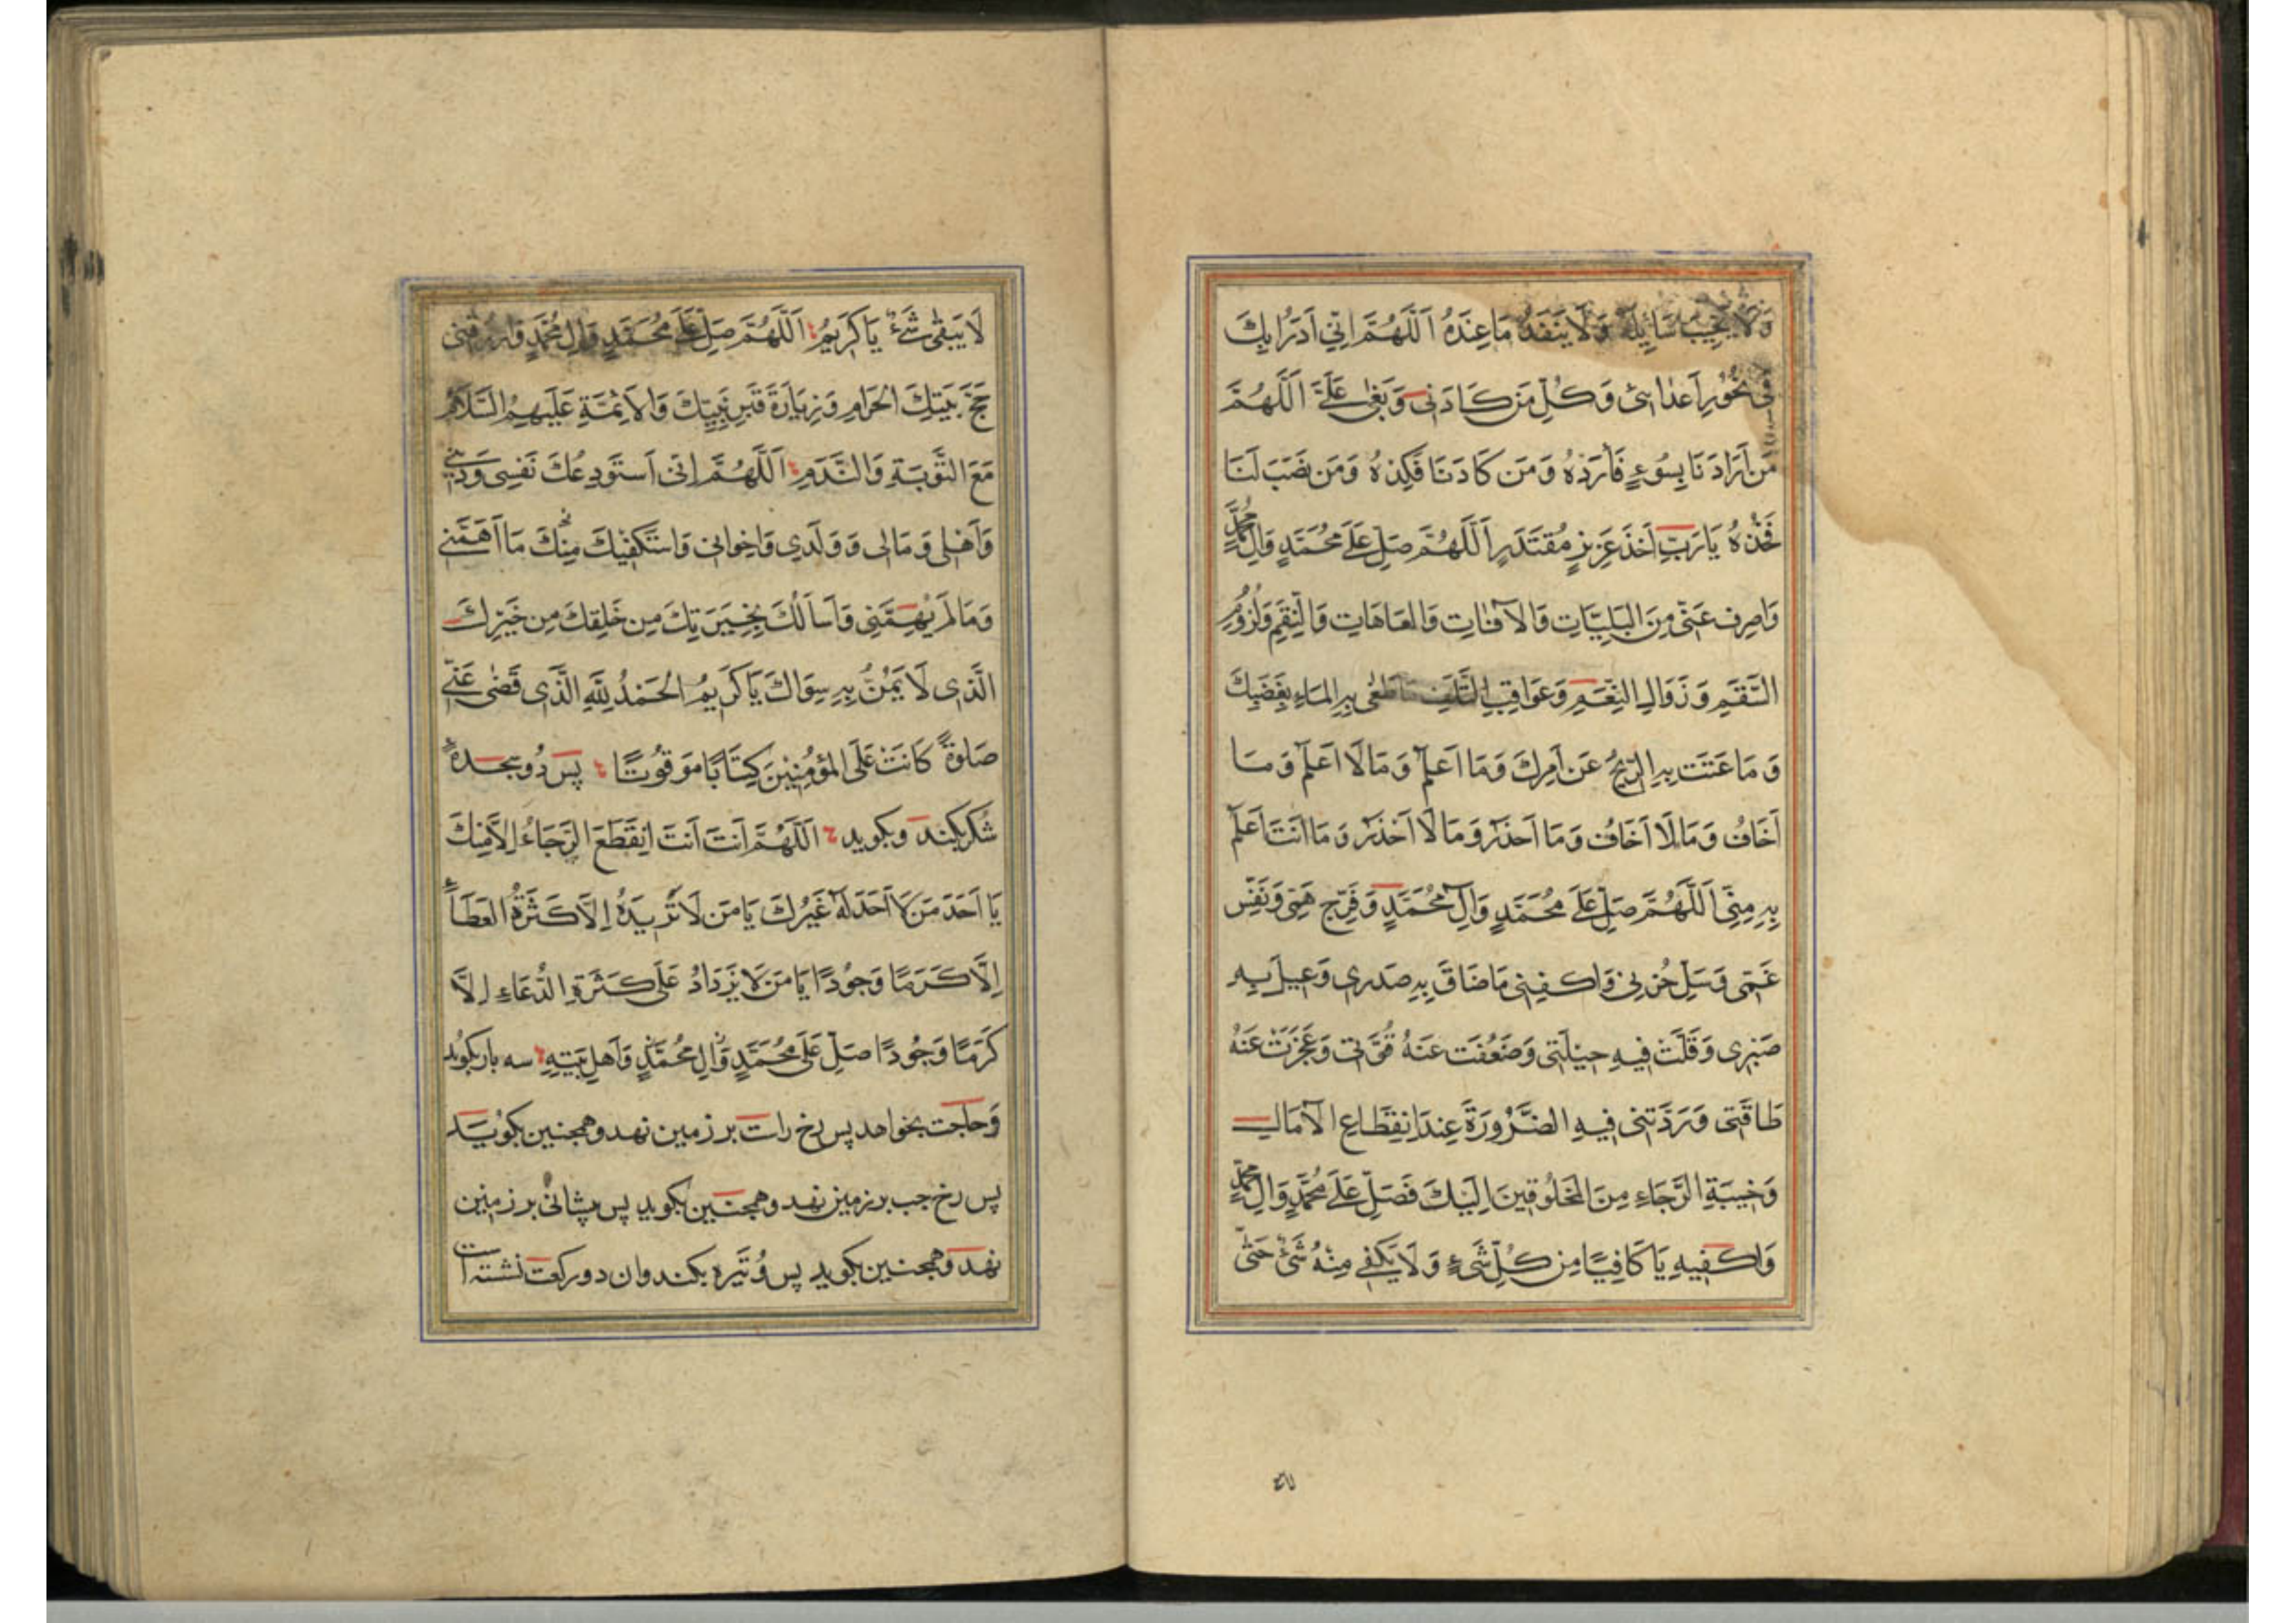 وَلَا يُخَيِّبُ سَائِلَهُ وَلَا يَنْفَدُ مَا عِنْدَهُ اَللَّهُمَّ اِنِّي اَدْرَأُ بِكَ
فِي نُحُورِ اَعْدَائِي وَكُلِّ مَنْ كَادَنِي وَبَغَى عَلَيَّ اَللَّهُمَّ
مَنْ اَرَادَنَا بِسُوءٍ فَاَرِدْهُ وَمَنْ كَادَنَا فَكِدْهُ وَمَنْ نَصَبَ لَنَا
فَخُذْهُ يَا رَبِّ اَخْذَ عَزِيزٍ مُقْتَدِرٍ اَللَّهُمَّ صَلِّ عَلَى مُحَمَّدٍ وَالِ مُحَمَّدٍ
وَاصْرِفْ عَنِّي مِنَ الْبَلِيَّاتِ وَالْآفَاتِ وَالْعَاهَاتِ وَالنِّقَمِ وَلُزُومِ
السَّقَمِ وَزَوَالِ النِّعَمِ وَعَوَاقِبِ التَّلَفِ مَا طَغَى بِهِ الْمَاءُ بِغَضَبِكَ
وَمَا عَتَتْ بِهِ الرِّيحُ عَنْ اَمْرِكَ وَمَا اَعْلَمُ وَمَا لَا اَعْلَمُ وَمَا
اَخَافُ وَمَا لَا اَخَافُ وَمَا اَحْذَرُ وَمَا لَا اَحْذَرُ وَمَا اَنْتَ اَعْلَمُ
بِهِ مِنِّي اَللَّهُمَّ صَلِّ عَلَى مُحَمَّدٍ وَآلِ مُحَمَّدٍ وَفَرِّجْ هَمِّي وَنَفِّسْ
غَمِّي وَسَلِّ حُزْنِي وَاكْفِنِي مَا ضَاقَ بِهِ صَدْرِي وَعِيلَ بِهِ
صَبْرِي وَقَلَّتْ فِيهِ حِيلَتِي وَضَعُفَتْ عَنْهُ قُوَّتِي وَعَجَزَتْ عَنْهُ
طَاقَتِي وَرَدَّتْنِي فِيهِ الضَّرُورَةُ عِنْدَ انْقِطَاعِ الْآمَالِ
وَخَيْبَةِ الرَّجَاءِ مِنَ الْمَخْلُوقِينَ اِلَيْكَ فَصَلِّ عَلَى مُحَمَّدٍ وَالِ مُحَمَّدٍ
وَاكْفِنِيهِ يَا كَافِيًا مِنْ كُلِّ شَيْءٍ وَلَا يَكْفِي مِنْهُ شَيْءٌ حَتَّى
لَا يَبْقَى شَيْءٌ يَا كَرِيمُ اَللَّهُمَّ صَلِّ عَلَى مُحَمَّدٍ وَالِ مُحَمَّدٍ وَارْزُقْنِي
حَجَّ بَيْتِكَ الْحَرَامِ وَزِيَارَةَ قَبْرِ نَبِيِّكَ وَالْاَئِمَّةِ عَلَيْهِمُ السَّلَامُ
مَعَ التَّوْبَةِ وَالنَّدَمِ اَللَّهُمَّ اِنِّي اَسْتَوْدِعُكَ نَفْسِي وَدِينِي
وَاَهْلِي وَمَالِي وَوَلَدِي وَاِخْوَانِي وَاَسْتَكْفِيكَ مِنْكَ مَا اَهَمَّنِي
وَمَا لَمْ يُهِمَّنِي وَاَسْاَلُكَ بِخِيَرَتِكَ مِنْ خَلْقِكَ مِنْ خَيْرِكَ
الَّذِي لَا يَمُنُّ بِهِ سِوَاكَ يَا كَرِيمُ الْحَمْدُ لِلَّهِ الَّذِي قَضَى عَنِّي
صَلٰوةً كَانَتْ عَلَى الْمُؤْمِنِينَ كِتَابًا مَوْقُوتًا پس دو سجده
شکر بکند و بکوید اَللَّهُمَّ اَنْتَ اَنْتَ اِنْقَطَعَ الرَّجَاءُ اِلَّا مِنْكَ
يَا اَحَدَ مَنْ لَا اَحَدَ لَهُ غَيْرُكَ يَا مَنْ لَا تَزِيدُهُ اِلَّا كَثْرَةُ الْعَطَاءِ
اِلَّا كَرَمًا وَجُودًا يَا مَنْ لَا يَزْدَادُ عَلَى كَثْرَةِ الدُّعَاءِ اِلَّا
كَرَمًا وَجُودًا صَلِّ عَلَى مُحَمَّدٍ وَالِ مُحَمَّدٍ وَاَهْلِ بَيْتِهِ سه بار بکوید
وحاجت بخواهد پس رخ راست بر زمین نهد و همچنین بکوید
پس رخ چپ بر زمین نهد و همچنین بکوید پس پیشانی بر زمین
نهد و همچنین بکوید پس وتیره بکند وان دو رکعت نشسته است